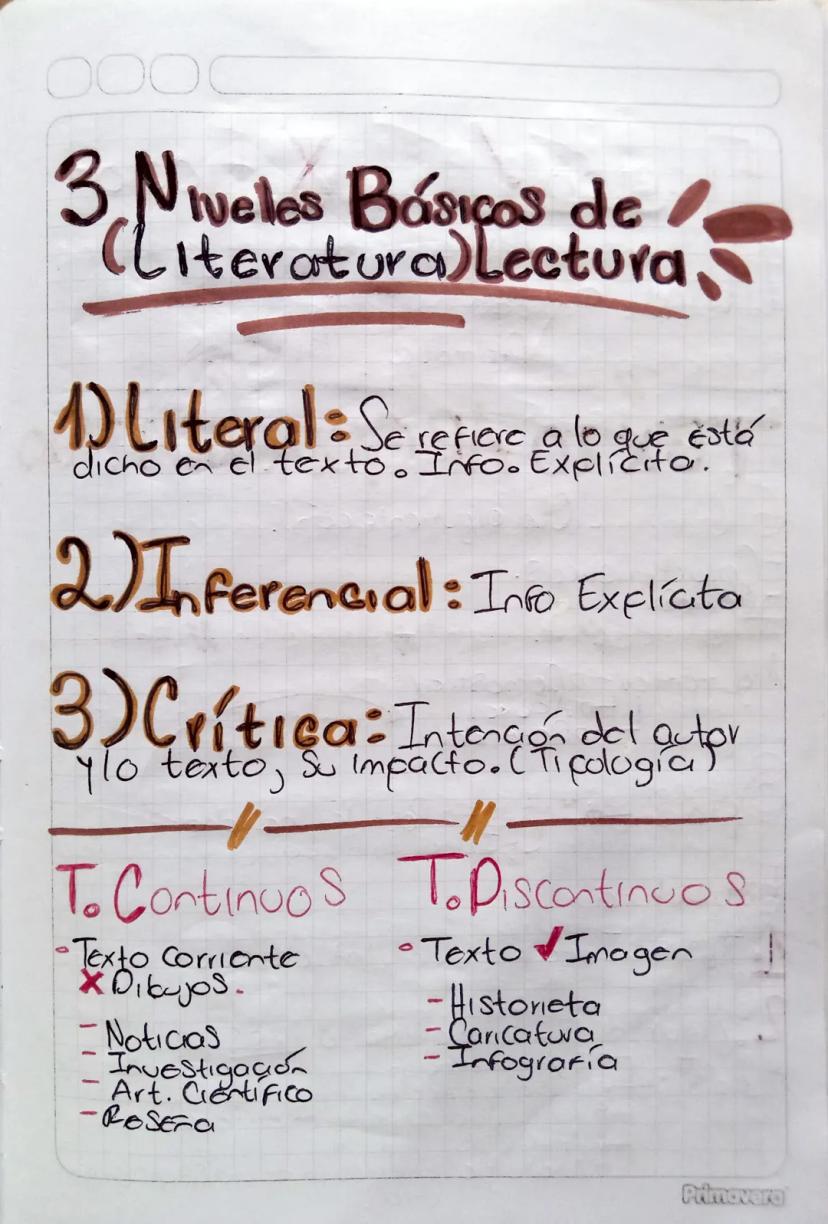 3 Niveles Básicos de
(Literatura) Lectura
1) Literal: Se refiere a lo que está
dicho en el texto. Info. Explícito.
2) Inferencial: Info Explícita
3) Crítica: Intención del autor
y lo texto, su impacto. (Tipología)
T. Continuos
• Texto corriente
x Dibujos.
- Noticias
- Investigación
- Art. Científico
- Reseña
T. Discontinuos
• Texto ✓ Imagen
- Historieta
- Caricatura
- Infografía
Primavera